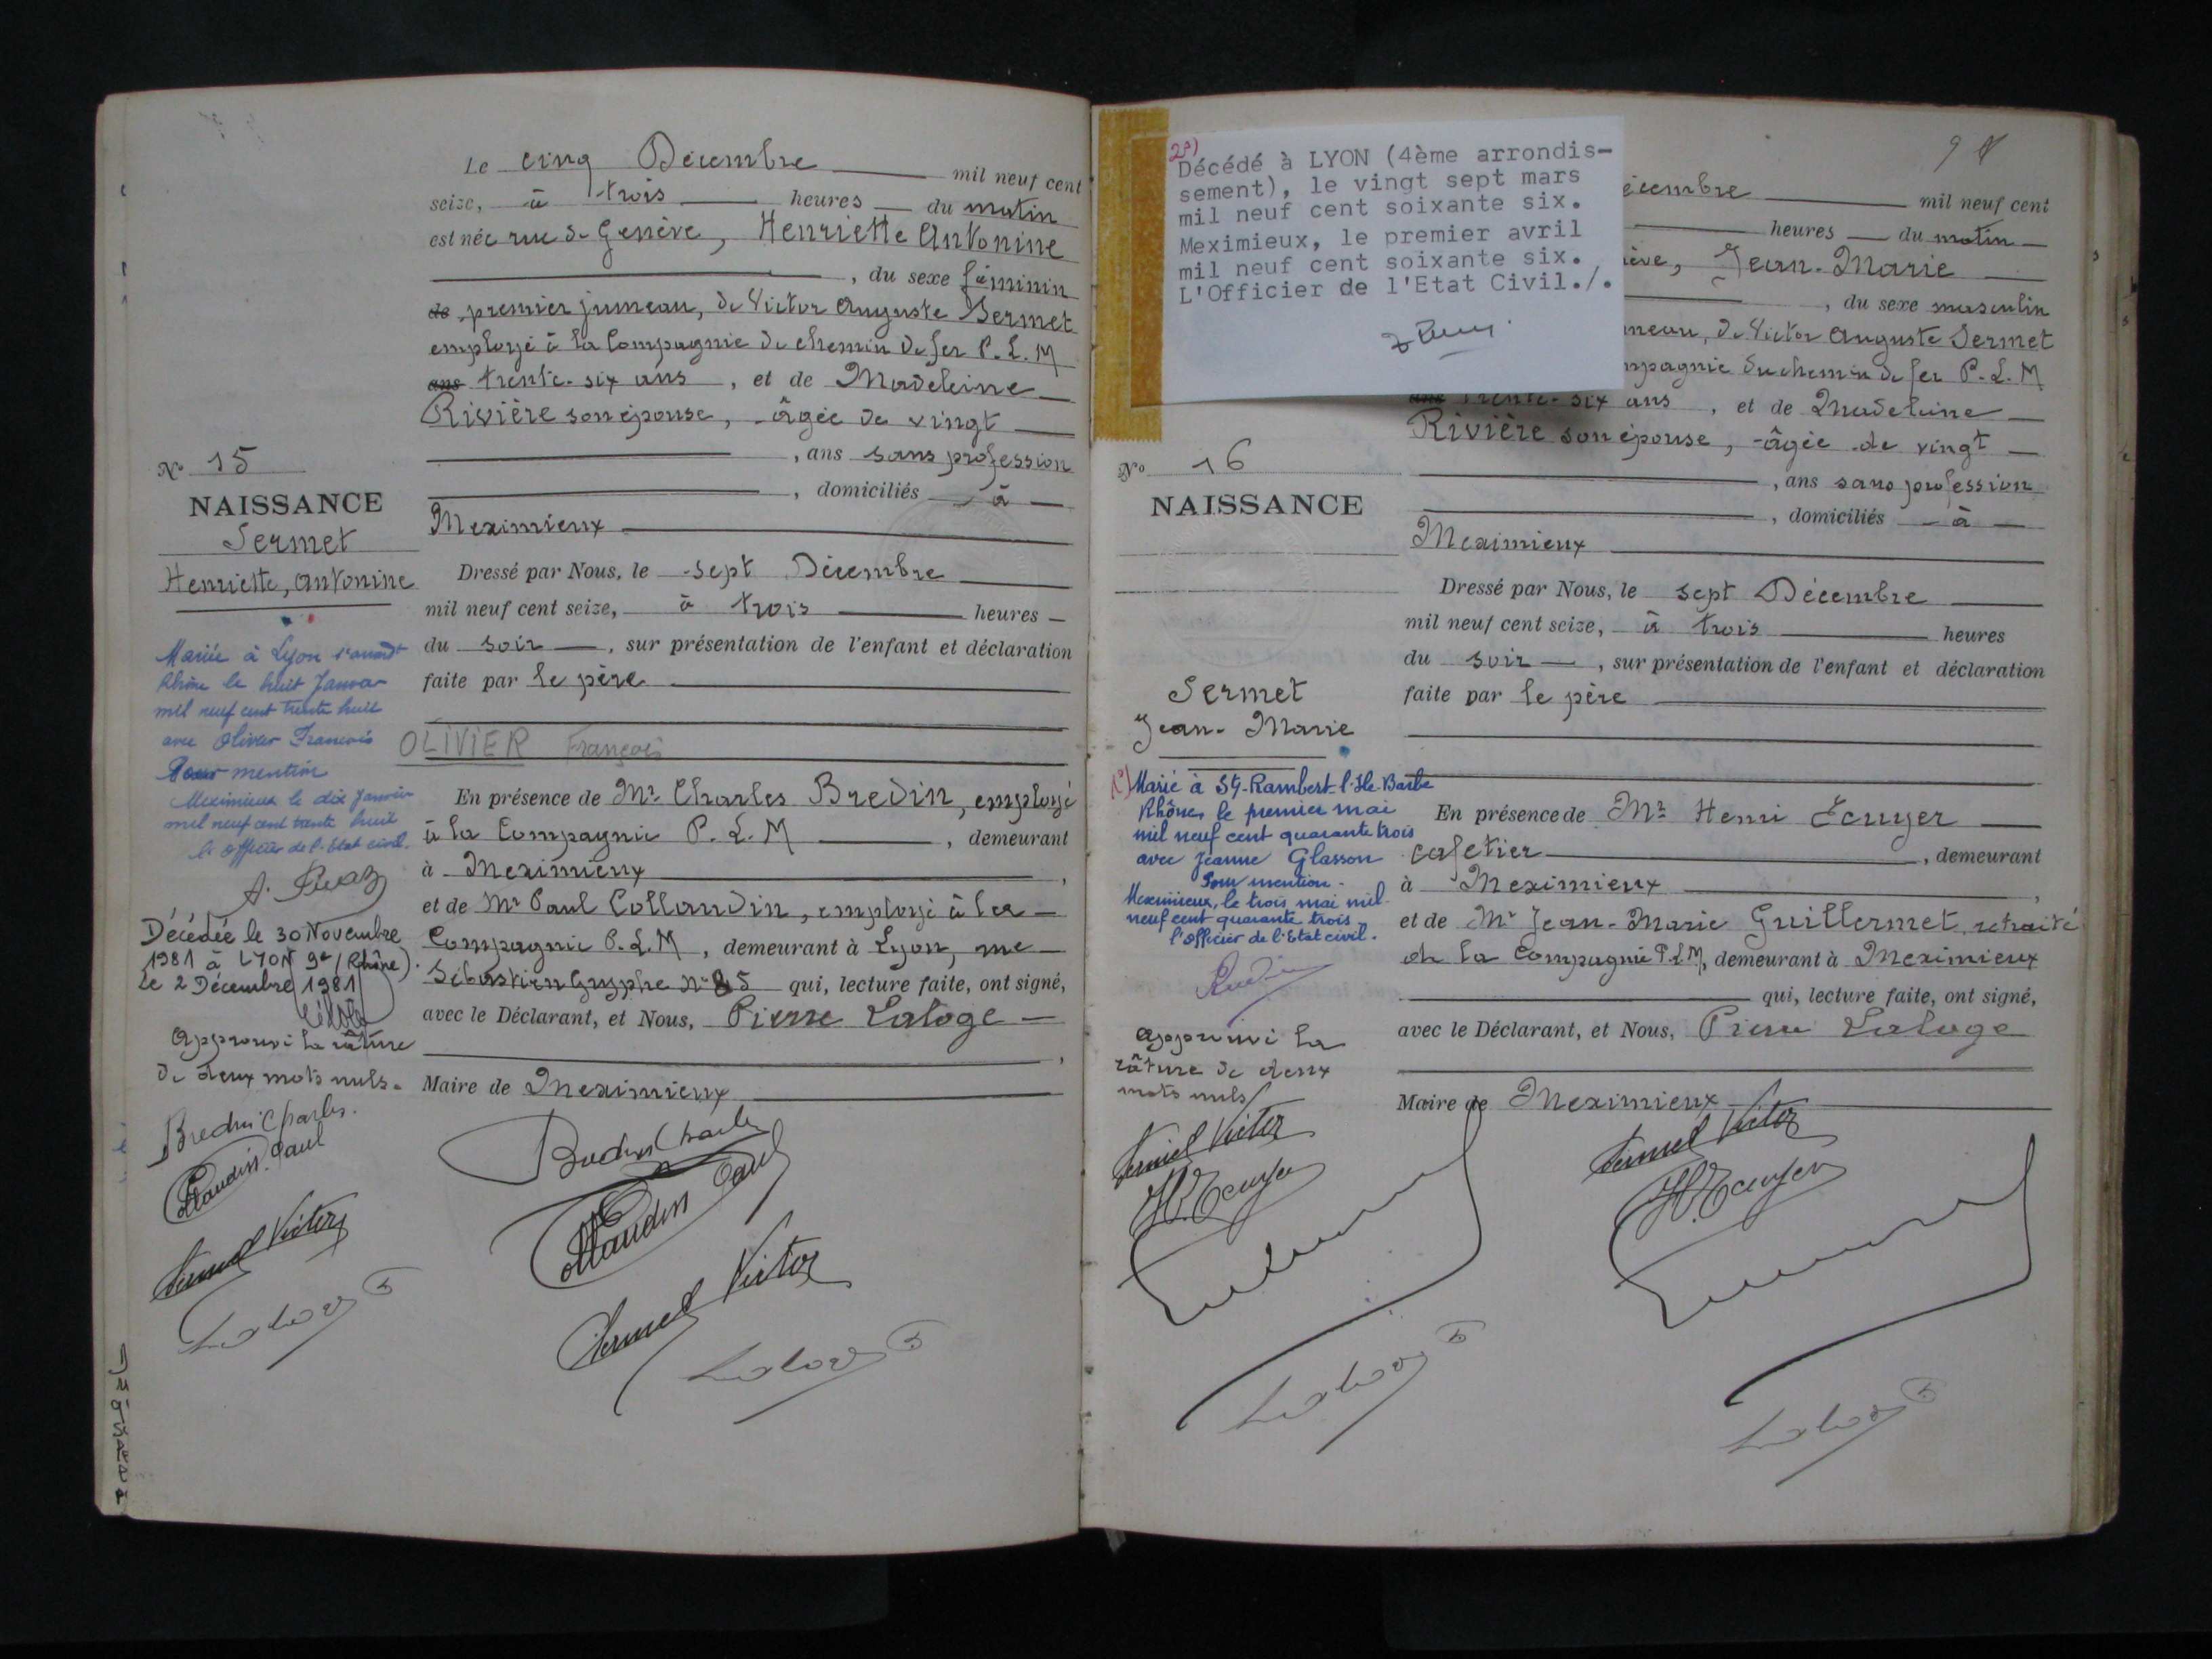 Le cinq Décembre mil neuf cent
seize, à trois heures du matin
est née rue de Genève, Henriette Antonine
, du sexe féminin
de premier jumeau, de Victor Auguste Sermet
employé à la Compagnie du chemin de fer P.L.M
ans trente-six ans, et de Madeleine
Rivière son épouse, âgée de vingt
, ans sans profession
, domiciliés à
Meximieux
Dressé par Nous, le sept Décembre
mil neuf cent seize, à trois heures
du soir, sur présentation de l'enfant et déclaration
faite par le père
OLIVIER François
En présence de Mr Charles Bredin, employé
à la Compagnie P.L.M, demeurant
à Meximieux,
et de Mr Paul Collaudin, employé à la
Compagnie P.L.M, demeurant à Lyon, rue
Sébastien Gryphe N° 85 qui, lecture faite, ont signé,
avec le Déclarant, et Nous, Pierre Laloge
,
Maire de Meximieux
Bredin Charles
Collaudin Paul
Sermet Victor
Laloge
N° 15
NAISSANCE
Sermet
Henriette, Antonine
Mariée à Lyon 1er arrondt
Rhône le huit Janvier
mil neuf cent trente huit
avec Olivier François
Pour mention
Meximieux le dix Janvier
mil neuf cent trente huit
l'officier de l'Etat civil.
Décédée le 30 Novembre
1981 à LYON 9e (Rhône).
Le 2 Décembre 1981
Approuvé la râture
de deux mots nuls.
Bredin Charles.
Collaudin Paul
Sermet Victor
Laloge
9
2°)
Décédé à LYON (4ème arrondis-
sement), le vingt sept mars
mil neuf cent soixante six.
Meximieux, le premier avril
mil neuf cent soixante six.
L'Officier de l'Etat Civil./.
écembre mil neuf cent
heures du matin
ève, Jean-Marie
, du sexe masculin
meau, de Victor Auguste Sermet
mpagnie du chemin de fer P.L.M
ans trente-six ans, et de Madeleine
Rivière son épouse, âgée de vingt
, ans sans profession
, domiciliés à
Meximieux
Dressé par Nous, le sept Décembre
mil neuf cent seize, à trois heures
du soir, sur présentation de l'enfant et déclaration
faite par le père
En présence de Mr Henri Ecuyer
cafetier, demeurant
à Meximieux,
et de Mr Jean-Marie Guillermet, retraité
de la Compagnie P.L.M, demeurant à Meximieux
qui, lecture faite, ont signé,
avec le Déclarant, et Nous, Pierre Laloge
Maire de Meximieux
Sermet Victor
H. Ecuyer
Laloge
N° 16
NAISSANCE
Sermet
Jean-Marie
1°) Marié à St-Rambert-l'Ile-Barbe
Rhône, le premier mai
mil neuf cent quarante trois
avec Jeanne Glasson
Pour mention.
Meximieux, le trois mai mil
neuf cent quarante trois
l'officier de l'Etat civil.
Approuvé la
râture de deux
mots nuls
Sermet Victor
H. Ecuyer
Laloge